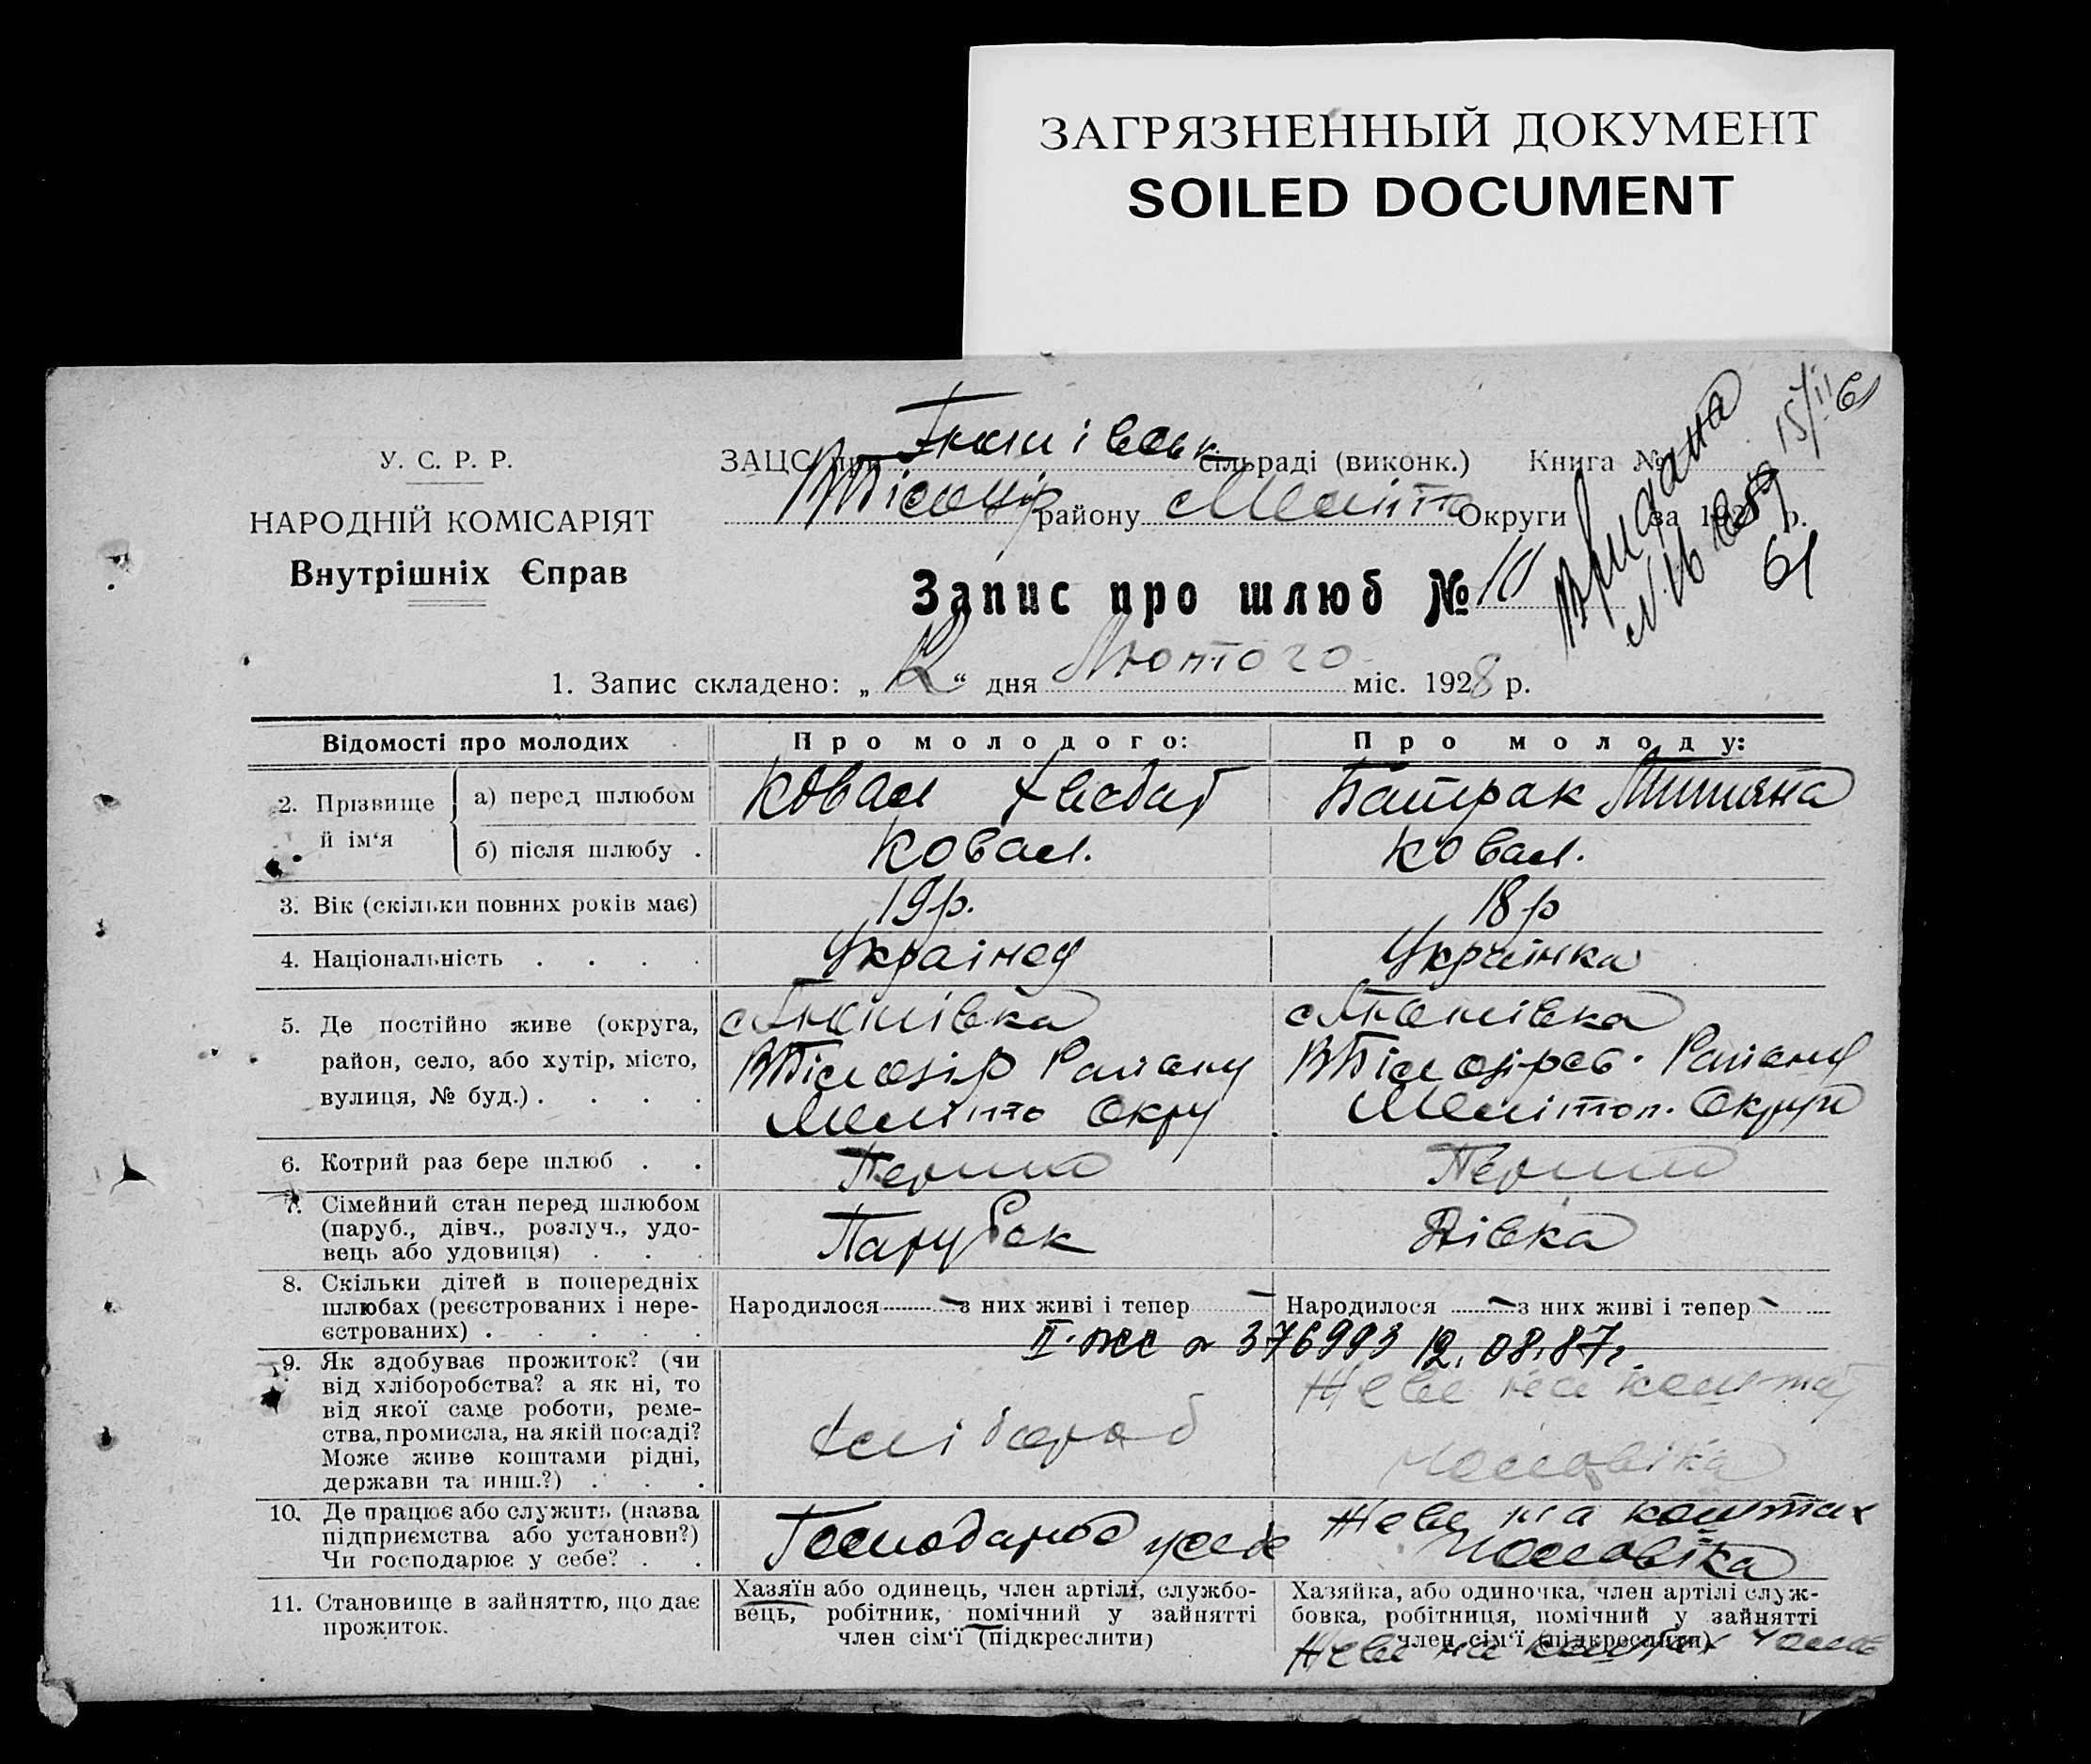 ЗАГРЯЗНЕННЫЙ ДОКУМЕНТ
SOILED DOCUMENT
У. С. Р. Р.
НАРОДНІЙ КОМІСАРІЯТ
Внутрішніх Єправ
ЗАЦС при сільраді (виконк.) Книга №
району Меліто Округи за 192 р.
Видана
61
Запис про шлюб № 10
1. Запис складено: „ “ дня Лютого міс. 1928 р.
Відомості про молодих
Про молодого:
Про молоду:
2. Прізвище й ім‘я
а) перед шлюбом
Ковал
Батрак Титяна
б) після шлюбу .
Ковал.
Ковал.
3. Вік (скільки повних років має)
19р.
18р
4. Національність . . . .
Українец
Українка
5. Де постійно живе (округа,
район, село, або хутір, місто,
вулиця, № буд.) . . . .
ВБілозір Району
Меліто Окру
ВБілозірев. Району
Мелітоп. Округи
6. Котрий раз бере шлюб . .
Перший
Перший
7. Сімейний стан перед шлюбом
(паруб., дівч., розлуч., удо-
вець або удовиця) . . .
Парубок
Дівка
8. Скільки дітей в попередніх
шлюбах (реєстрованих і нере-
єстрованих) . . . . .
Народилося – з них живі і тепер –
Народилося – з них живі і тепер –
376993 12.08.87г.
9. Як здобуває прожиток? (чи
від хліборобства? а як ні, то
від якої саме роботи, реме-
ства, промисла, на якій посаді?
Може живе коштами рідні,
держави та инш.?) . . .
Хлібороб
Живе на коштах
Чоловіка
10. Де працює або служить (назва
підприємства або установи?)
Чи господарює у себе? . .
Господарює у себе
Живе на коштах
Чоловіка
11. Становище в зайняттю, що дає
прожиток.
Хазяїн або одинець, член артілі, службо-
вець, робітник, помічний у зайнятті
член сім‘ї (підкреслити)
Хазяйка, або одиночка, член артілі служ-
бовка, робітниця, помічний у зайнятті
член сім‘ї (підкреслити)
Живе на коштах